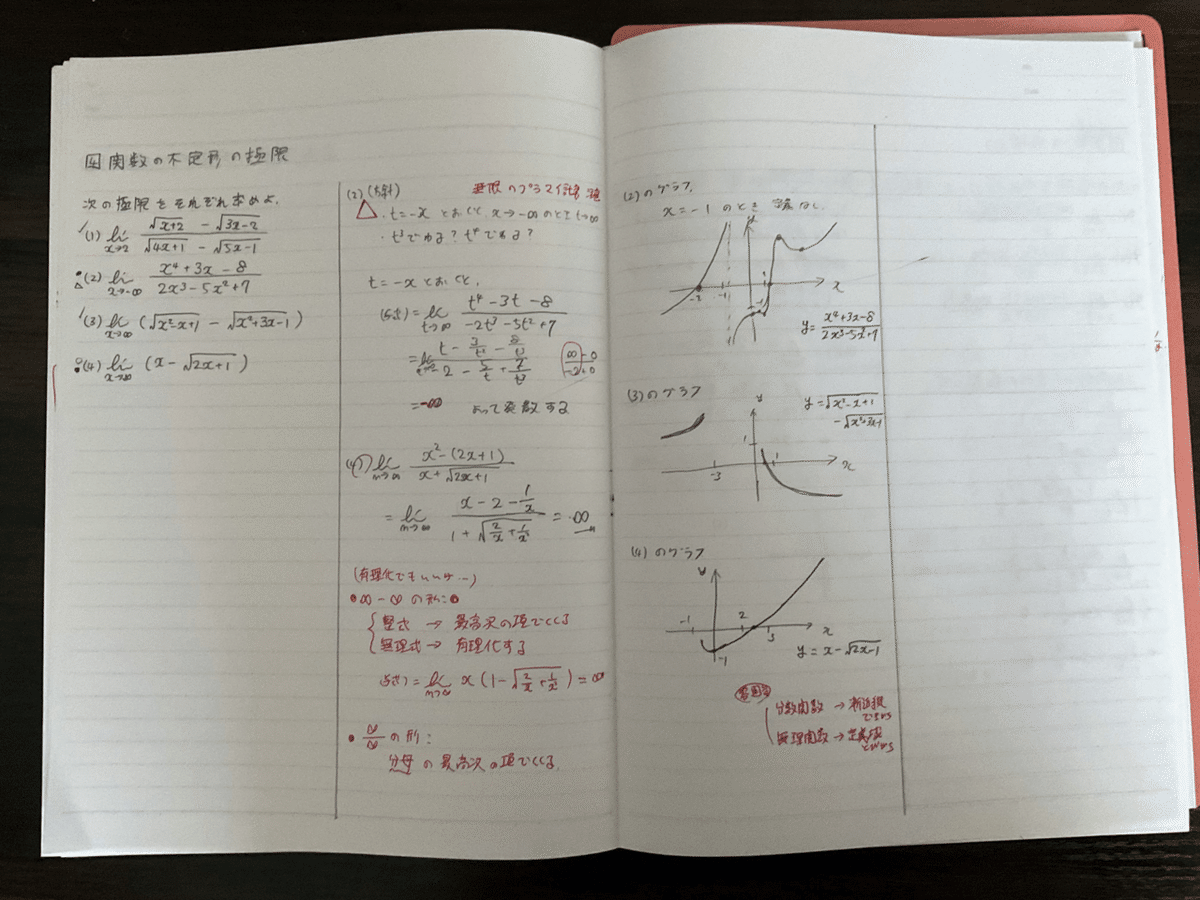 関数の不定形の極限
次の極限をそれぞれ求めよ.
(1) lim x→2 (√(x+2) - √(3x-2)) / (√(4x+1) - √(5x-1))
(2) lim x→-∞ (x⁴+3x-8) / (2x³-5x²+7)
(3) lim x→∞ (√(x²-x+1) - √(x²+3x-1))
(4) lim x→∞ (x-√(2x+1))
(2) (方針) 無限のプラマイ
△ ・t=-x とおくと x→-∞のとき t→∞
・t³でわる? t⁴でわる?
t=-x とおくと,
(与式) = lim t→∞ (t⁴-3t-8) / (-2t³-5t²+7)
= lim (t - 3/t² - 8/t³) / (-2 - 5/t + 7/t³) (∞-0) / (-2+0)
= -∞ よって発散する
(4) lim n→∞ (x²-(2x+1)) / (x+√(2x+1))
= lim n→∞ (x-2-1/x) / (1+√(2/x+1/x²)) = ∞
(有理化でもいいけど…)
●∞-∞の形:●
整式 → 最高次の項でくくる
無理式 → 有理化する
(与式) = lim n→∞ x(1-√(2/x+1/x²)) = ∞
● ∞/∞ の形:
分母の最高次の項でくくる.
(2)のグラフ.
x=-1 のとき なし.
y
-2 -1 -1 1 x
y = (x⁴+3x-8) / (2x³-5x²+7)
(3)のグラフ
y y=√(x²-x+1)
-√(x²+3x-1)
1
-3 1 x
(4)のグラフ
y
-1 2 3 x
-1 y = x-√(2x-1)
分数関数 → 漸近線
無理関数 → 定義域